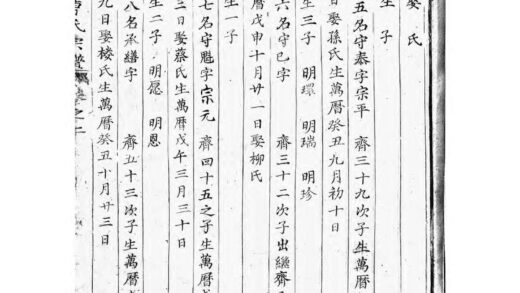 娶 氏
生 子
五名守泰字宗平 齊三十九次子生萬曆
日娶孫氏生萬曆癸丑九月初十日
生三子 明環 明瑞 明珍
六名守已字 齊三十二次子出繼齊
曆戊申十月廿一日娶柳氏
生一子
七名守魁字宗元 齊四十五之子生萬曆
三日娶蔡氏生萬曆戊午三月三十日
生二子 明愿 明恩
八名承繕字 齊五十三次子生萬曆
九日娶樓氏生萬曆癸丑十月廿三日
氏宗譜 卷之二